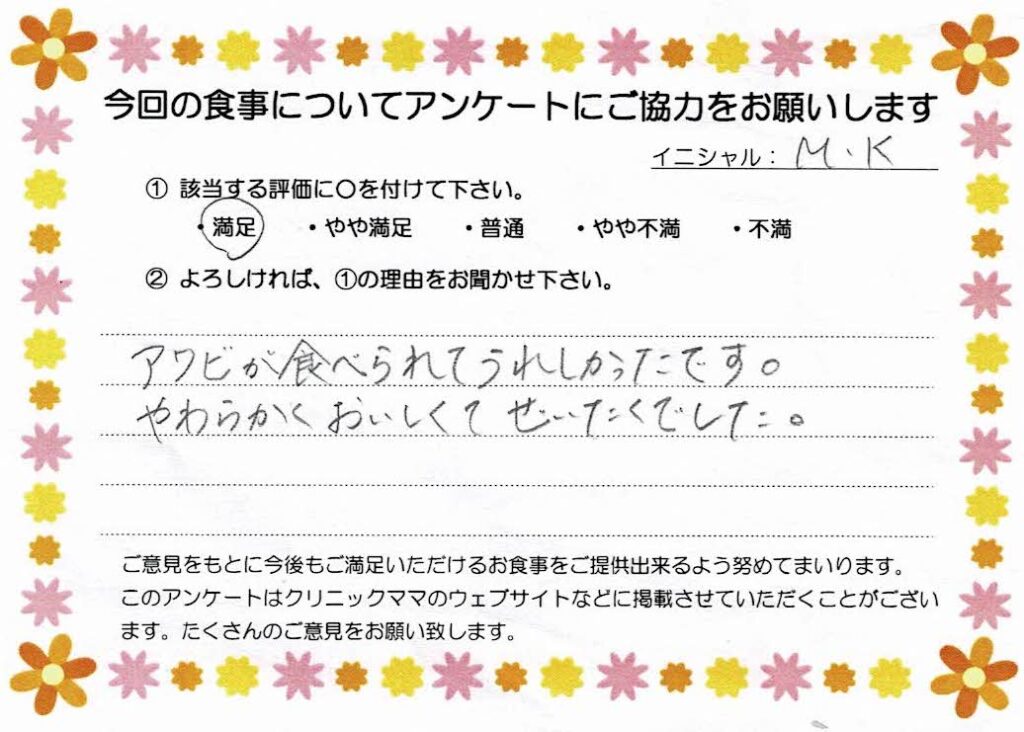 今回の食事についてアンケートにご協力をお願いします
イニシャル： M.K
① 該当する評価に〇を付けて下さい。
・満足 ・やや満足 ・普通 ・やや不満 ・不満
② よろしければ、①の理由をお聞かせ下さい。
アワビが食べられてうれしかったです。
やわらかくおいしくてぜいたくでした。
ご意見をもとに今後もご満足いただけるお食事をご提供出来るよう努めてまいります。
このアンケートはクリニックママのウェブサイトなどに掲載させていただくことがござい
ます。たくさんのご意見をお願い致します。